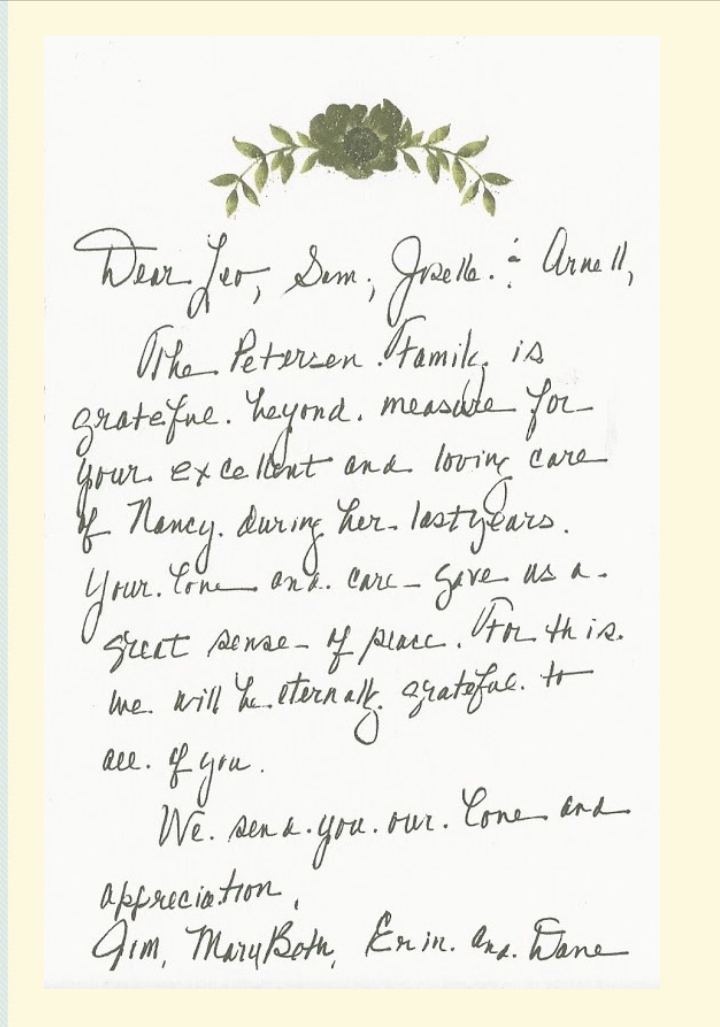 Dear Leo, Sam, Joselle. & Arnell,
The Petersen Family is
grateful beyond measure for
your excellent and loving care
of Nancy during her last years.
Your love and care gave us a
great sense of peace. For this
we will be eternally grateful to
all of you.
We send you our love and
appreciation,
Jim, MaryBeth, Erin and Dane